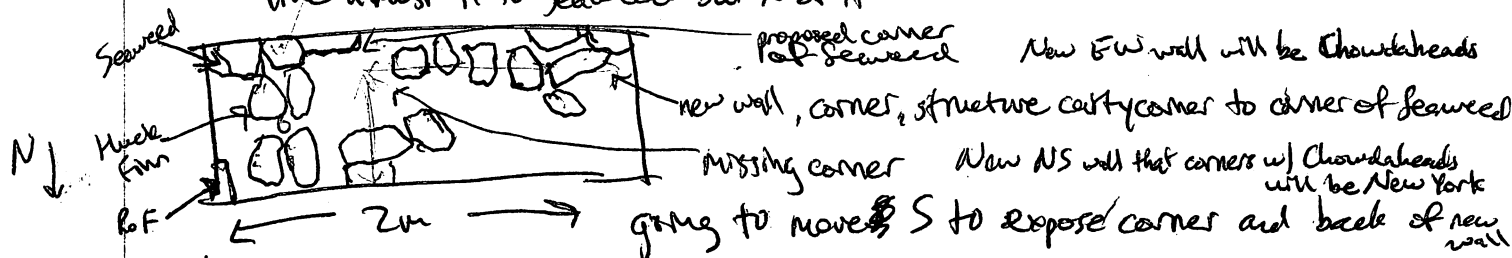 Seaweed
proposed corner
of Seaweed
New EW wall will be Chowdaheads
new wall, corner, structure cattycorner to corner of Seaweed
N
Huck
Finn
missing corner
New NS wall that corners w/ Chowdaheads
will be New York
RoF
2m
going to move S to expose corner and back of new
wall